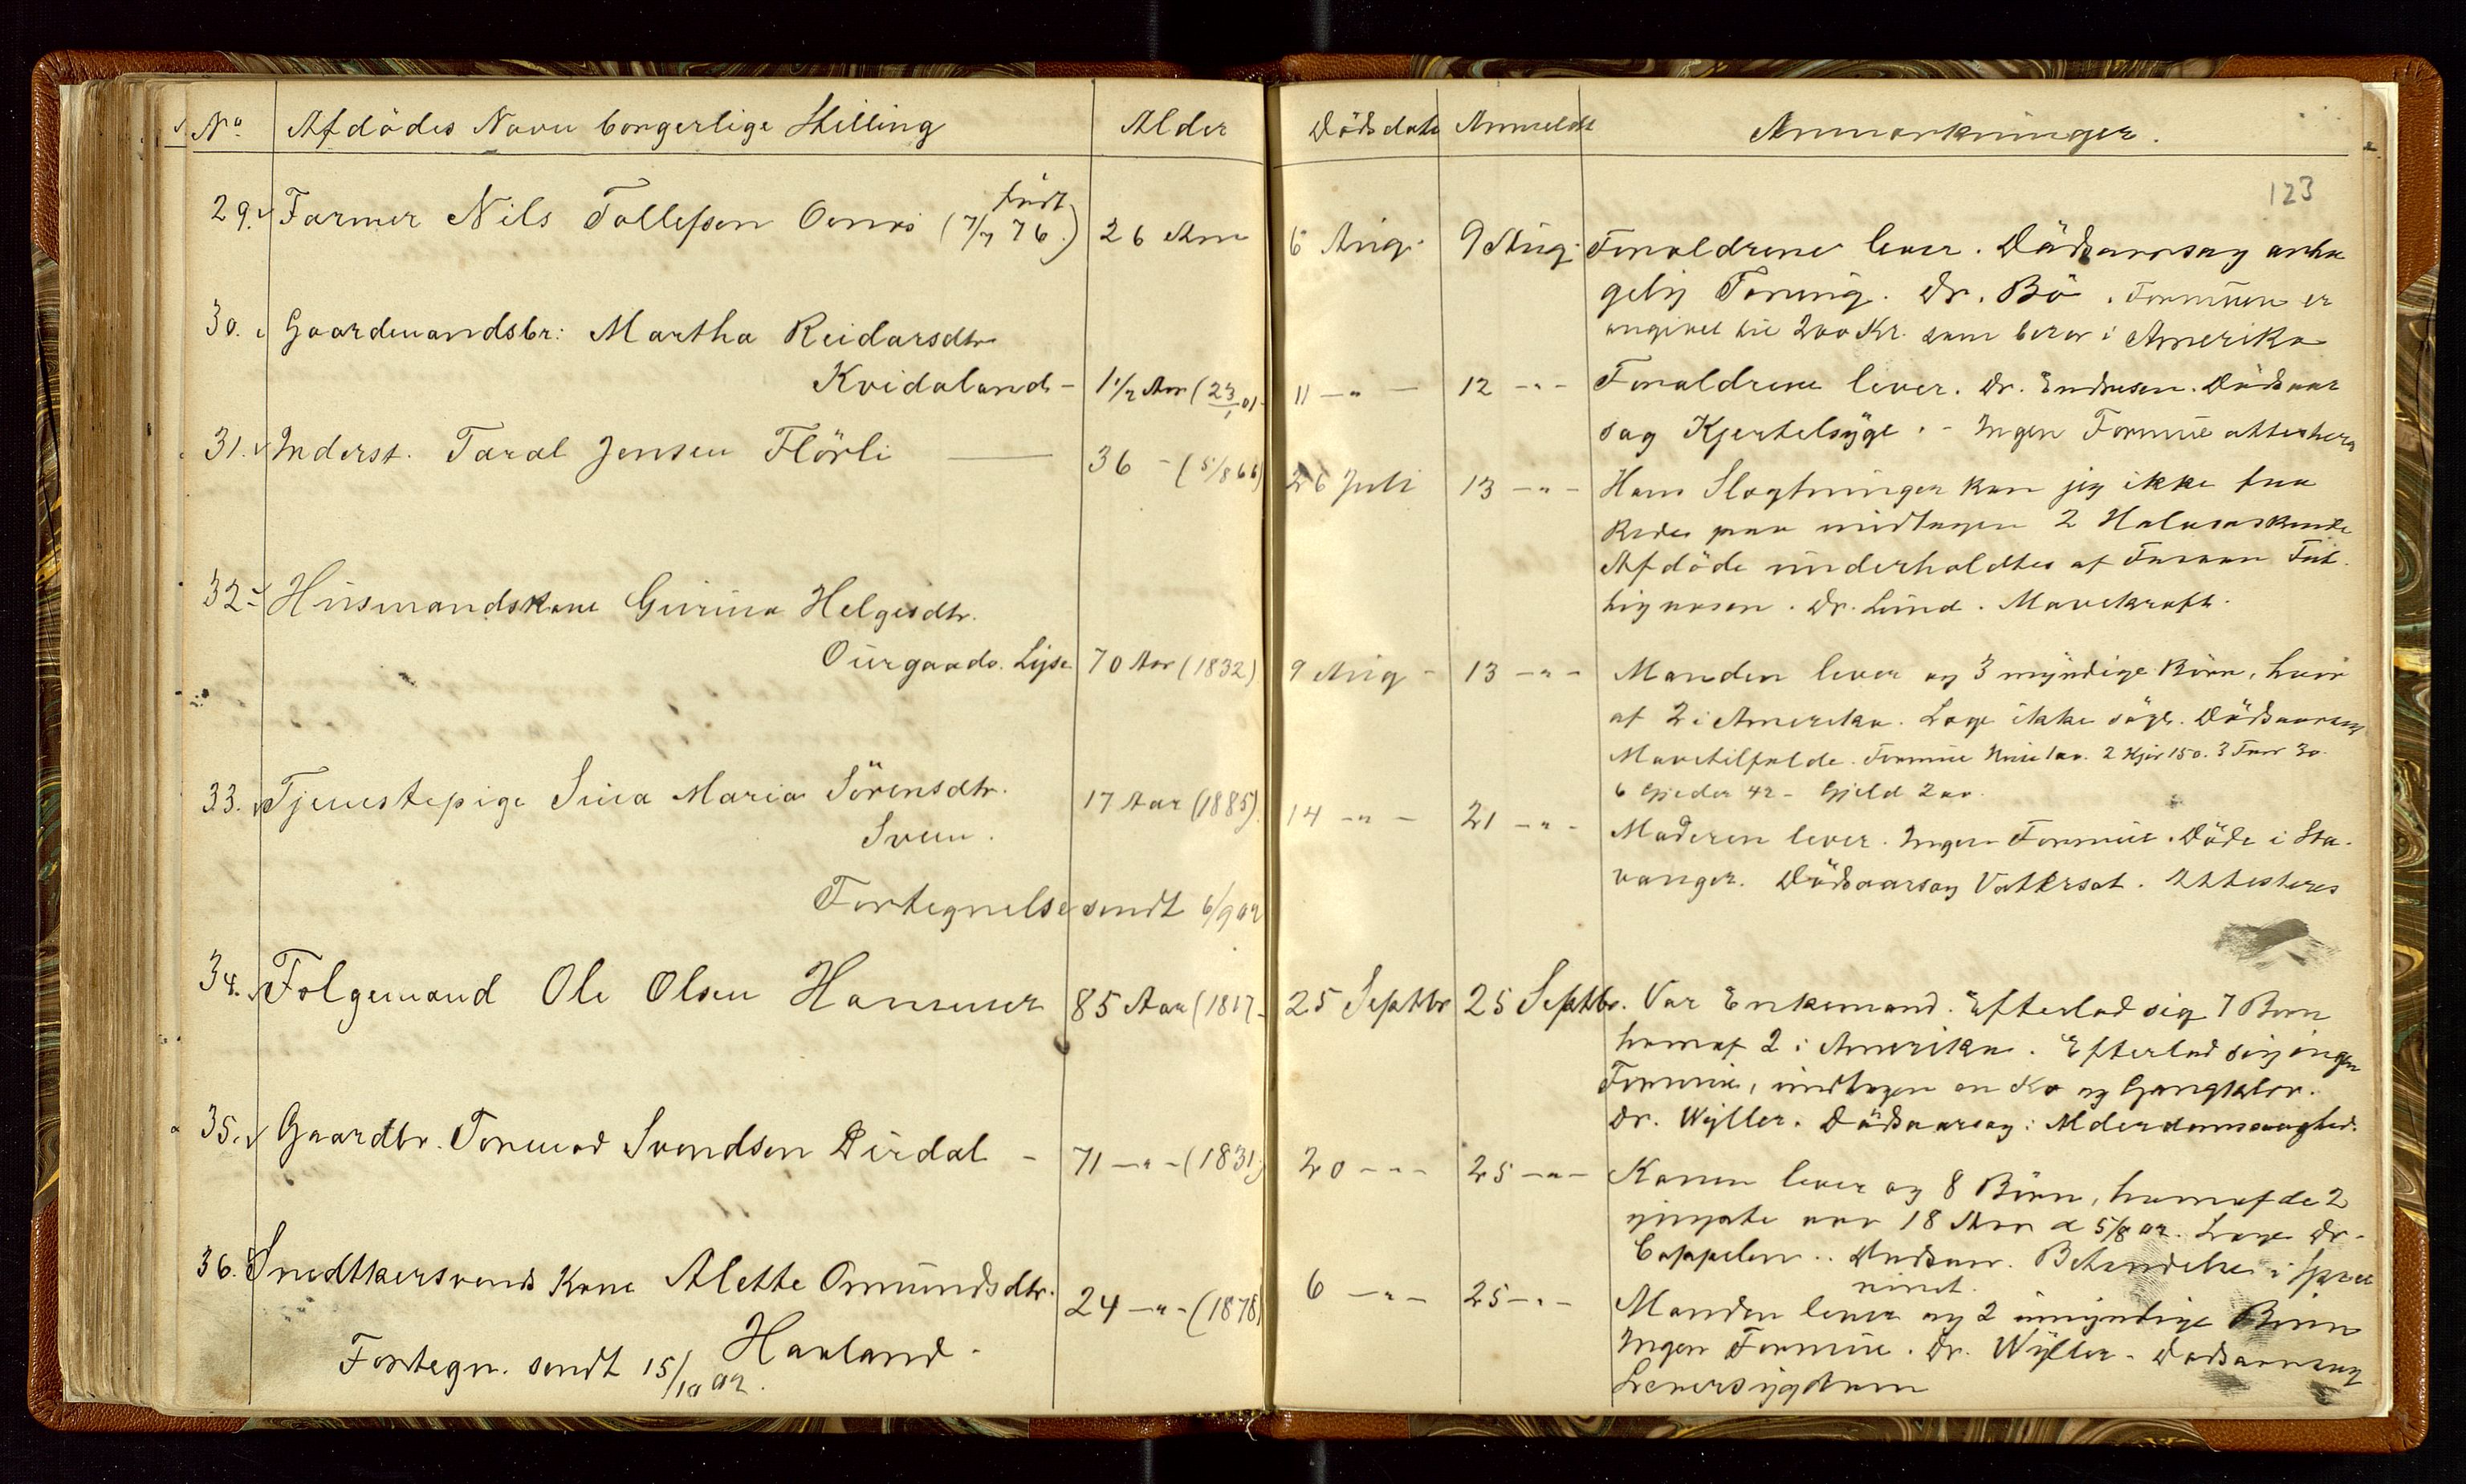 No. Afdødes Navn borgerlige Stilling Alder
29. Farmer Nils Tollefsen (født 7/7 76.) 26 Aar
30. Gaardmandsbr: Martha Reidarsdtr
Kvidaland - 1 1/2 Aar (23/1 01
31. Inderst. Taral Jensen Flörli 36 - (5/8 66)
32. Husmandskone Gurina Helgesdtr.
Ourgaads. Lyse 70 Aar (1832)
33. Tjenestepige Sina Maria Sörensdtr. 17 Aar (1885)
Sveen.
Fortegnelse sendt 6/9 02
34. Folgemand Ole Olsen Hammer 85 Aar (1817
35. Gaardbr. Tormod Svendsen Dirdal - 71 -"- (1831)
36. Snedkersvends Kone Alette Omundsdtr. 24 -"- (1878)
Haaland.
Fortegn. sendt 15/10 02.
Dödsdato Anmeldt Anmærkninger.
123
6 Aug. 9 Aug. Foraldrene lever. Dødsaarsag
Tæring. Dr. Bö. Formuen er
angivet til 200 Kr. som beror i Amerika
11 -"- 12 -"- Foraldrene lever. Dr. Endresen. Dödsaar
sag Kjertelsyge. - Ingen Formue attesteres
26 Juli 13 -"- Hans Slagtninger kan jeg ikke faa
Rede paa undtagen 2 Halvsøskende
Afdöde underholdtes af
Dr. Lund. Mavekræft.
9 Aug - 13 -"- Manden lever og 3 myndige Börn, hvor
af 2 i Amerika. Læge ikke sögt. Dødsaarsag
Mavetilfælde. Formue Huse 100. 2 Kjör 150. 3 Faar 30.
6 Gjeder 42 - Gjeld 200.
14 -"- 21 -"- Moderen lever. Ingen Formue. Döde i Sta-
vanger. Dödsaarsag Vattersot. Attesteres
25 Septbr 25 Septbr. Var Enkemand. Efterlod sig 7 Børn
hvoraf 2 i Amerika. Efterlod sig ingen
Formue, undtagen en Ko og Gangklær.
Dr. Wyller. Dödsaarsag: Alderdomssvaghed.
20 -"- 25 -"- Konen lever og 8 Börn, hvoraf de 2
yngste var 18 Aar d 5/8 02. Læge Dr.
Cappelen. Dødsaar. Behandles i
6 -"- 25 -"- Manden lever og 2 umyndige Börn
Ingen Formue. Dr. Wyller. Dødsaarsag
Leversygdom